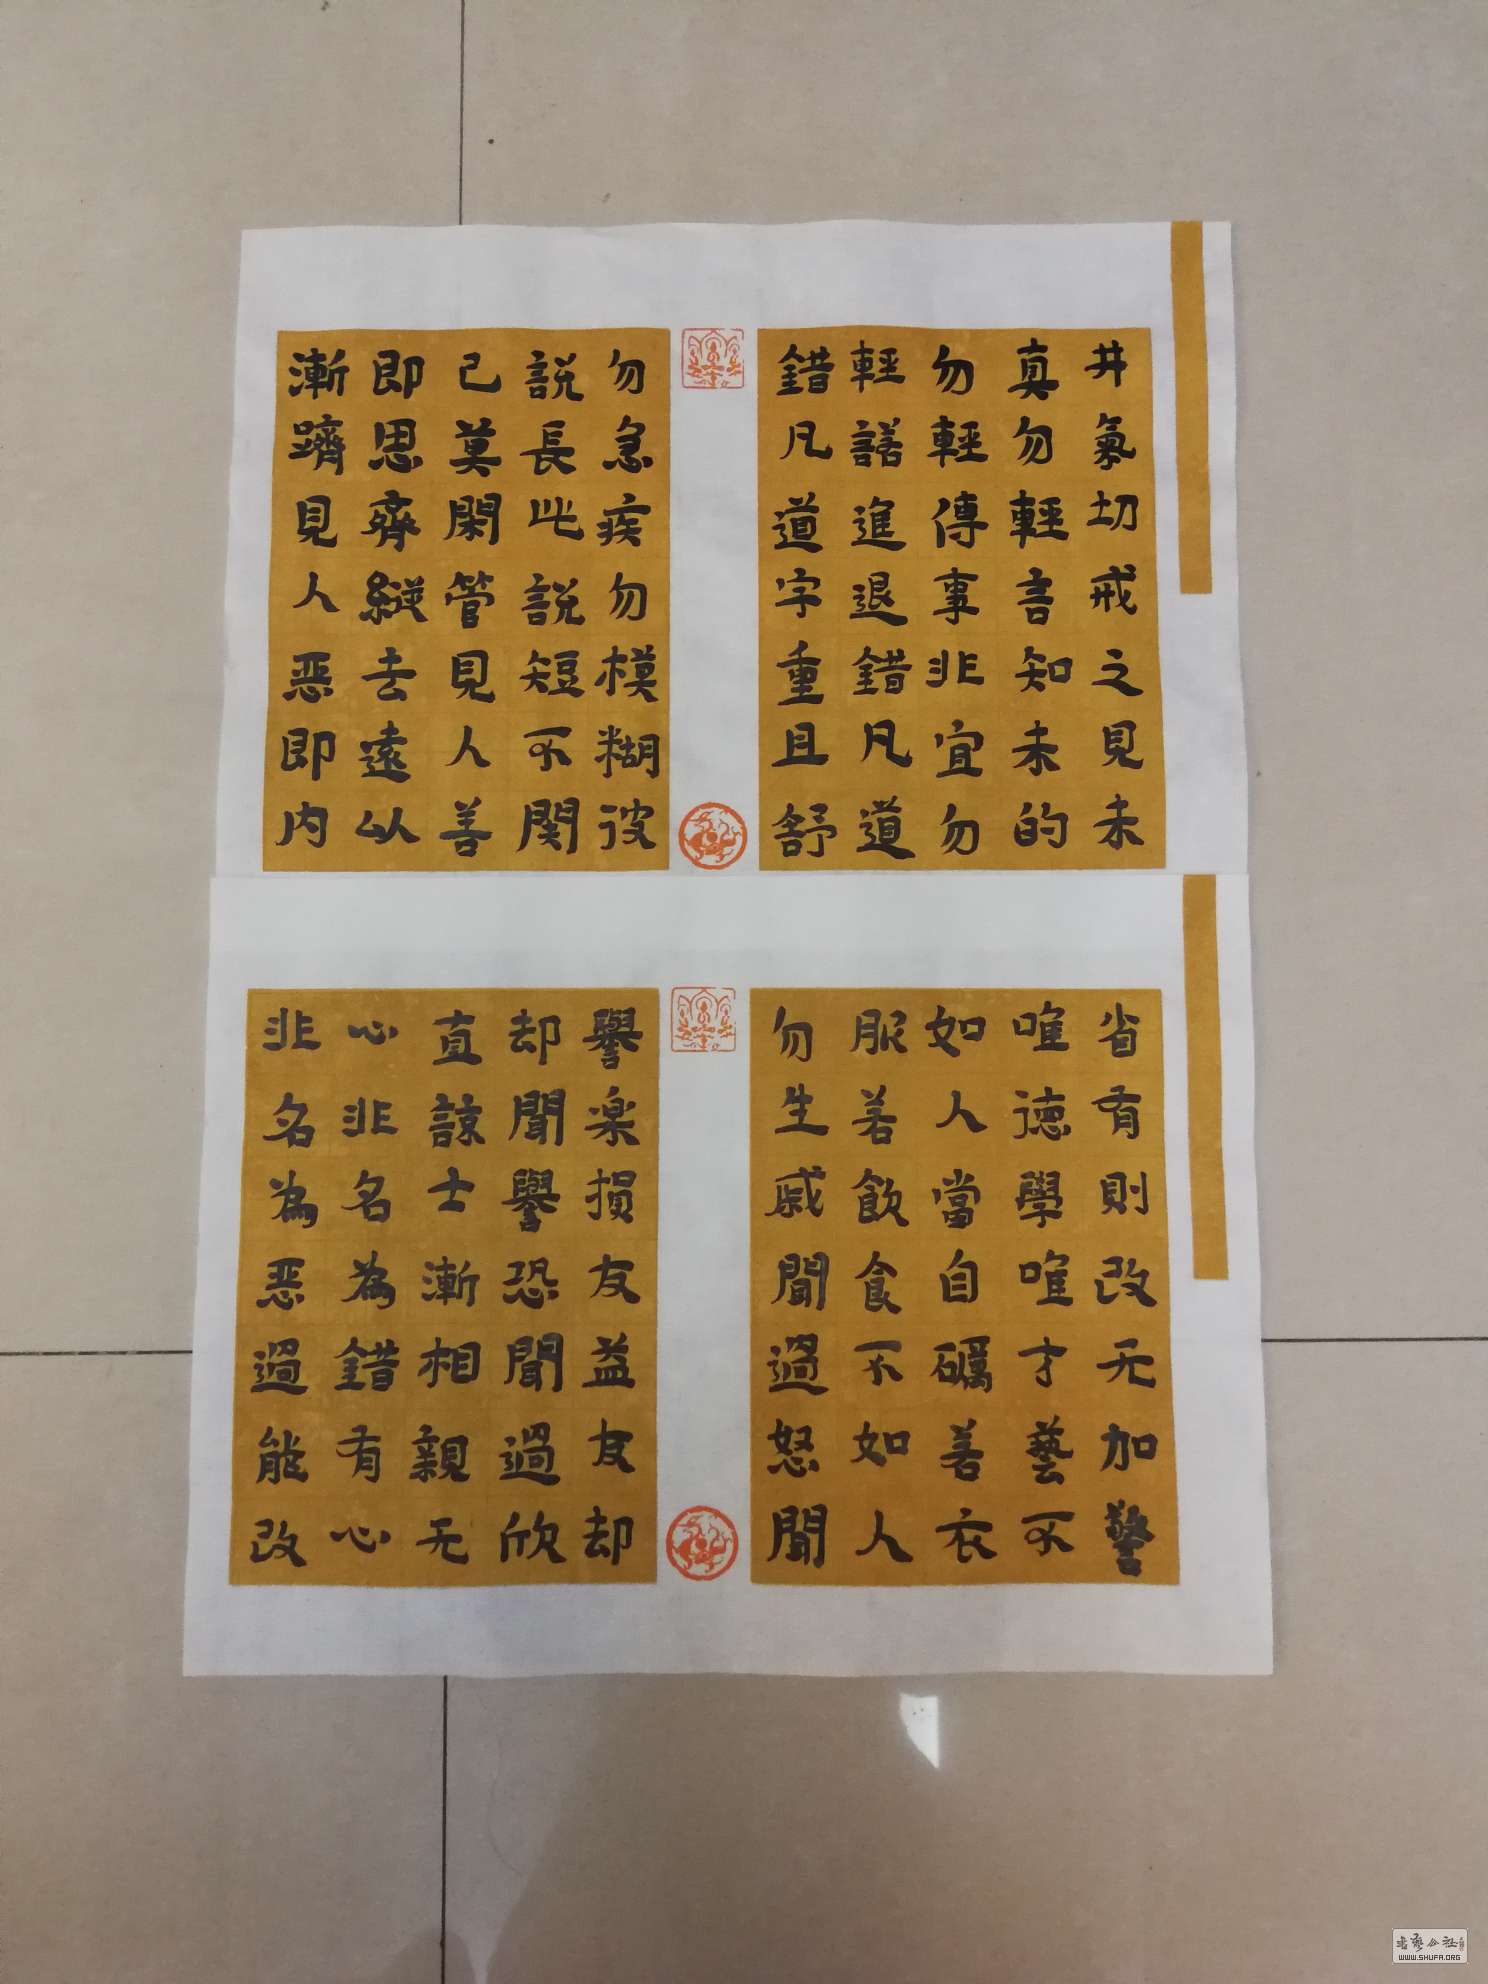 井氣切戒之見未
真勿輕言知未的
勿輕傳事非宜勿
輕諾進退錯凡道
錯凡道字重且舒
勿急疾勿模糊彼
説長此説短不関
己莫閑管見人善
即思齊縱去遠以
漸躋見人惡即内
省有則改无加警
唯德學唯才藝不
如人當自礪若衣
服若飲食不如人
勿生戚聞過怒聞
譽楽損友益友却
却聞譽恐聞過欣
直諒士漸相親无
心非名為錯有心
非名為惡過能改
WWW.SHUFA.ORG